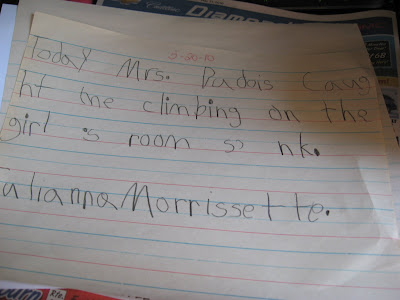 Diamond
5-20-10
Today Mrs. Dadois Caug
ht me climbing on the
girl s room s nk.
JaliannaMorrissette.